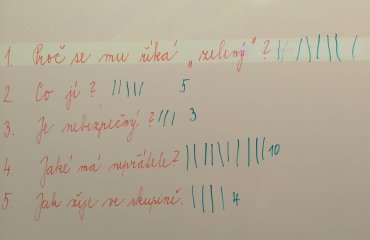 1. Proč se mu říká „zelený“?
2. Co jí? 5
3. Je nebezpečný? 3
4. Jaké má nepřátele? 10
5. Jak žije ve skupině. 4